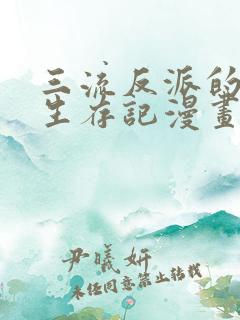 三流反派的
生存記漫畫
尹曦妍
未经同意禁止转载